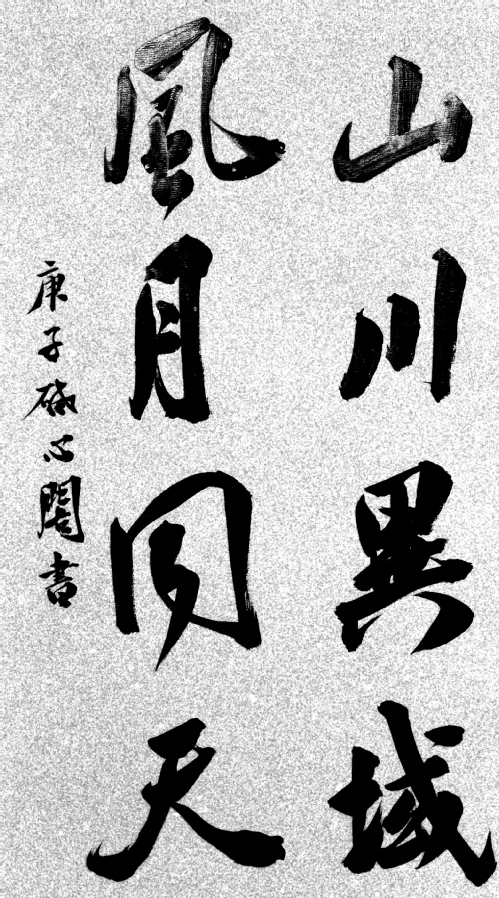 山川異域
風月同天
庚子 心閣書